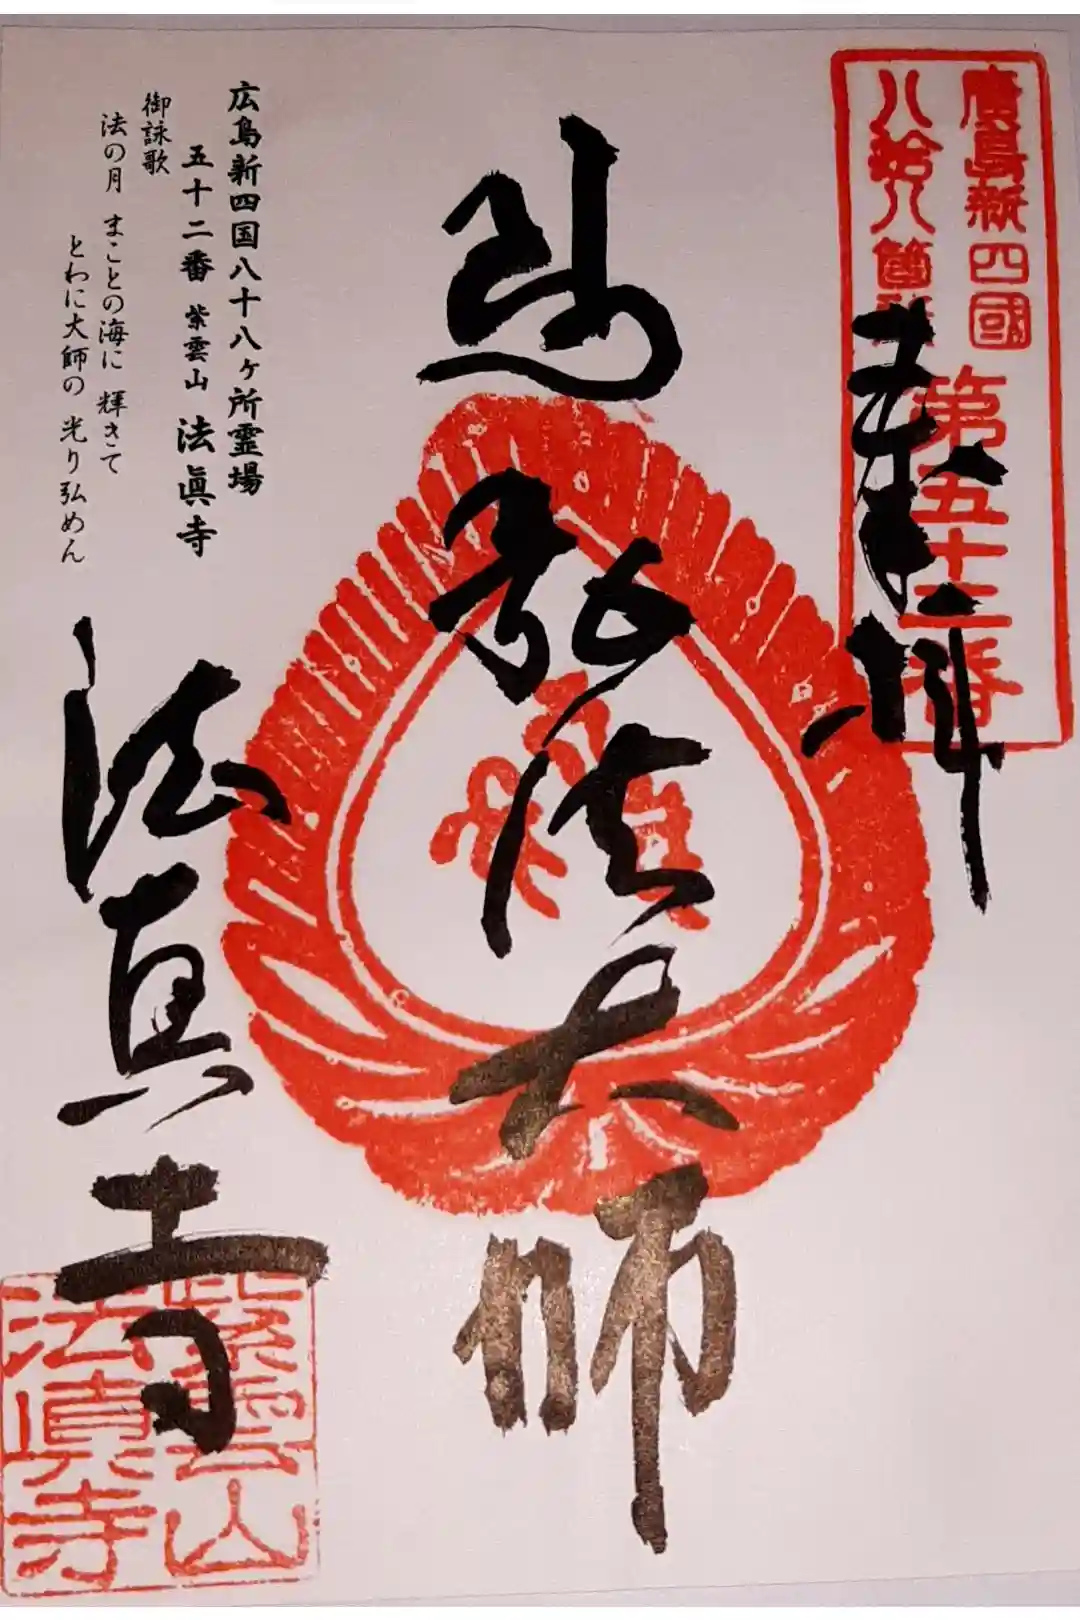 廣島新四國
八拾八箇所
第五十二番
奉拝
弘法大師
法真寺
広島新四国八十八ヶ所霊場
五十二番 紫雲山 法眞寺
御詠歌
法の月 まことの海に 輝きて
とわに大師の 光り弘めん
紫雲山
法真寺